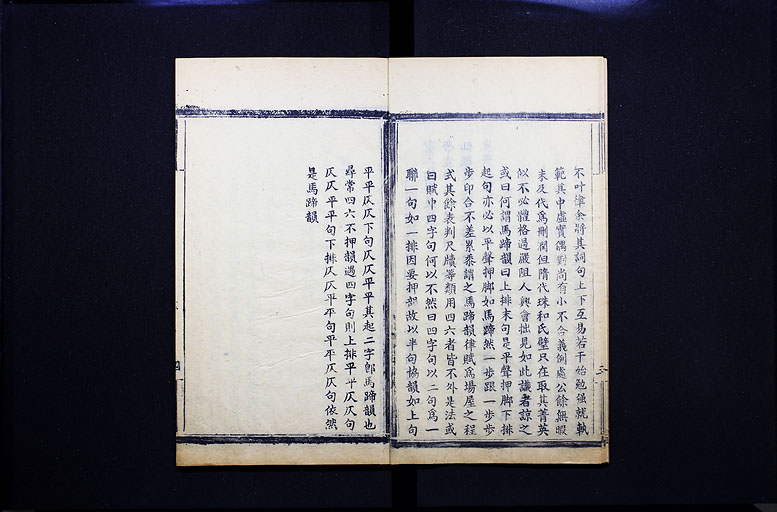 不叶律余將其詞句上下互易若干始勉强就軌
範其中虛實偶對尚有小不合義例處公餘無暇
未及代爲刪潤但隋代珠和氏璧只在取其菁英
似不必體格過嚴阻人興會拙見如此識者諒之
或曰何謂馬蹄韻曰上排末句是平聲押脚下排
起句亦必以平聲押脚如馬蹄然一步跟一步步
步印合不差累黍謂之馬蹄韻律賦爲場屋之程
式其餘表判尺牘等類用四六者皆不外是法或
曰賦中四字句何以不然曰四字句以二句爲一
聯一句如一排因要押韻故以半句協韻如上句
平平仄仄下句仄仄平平其起二字卽馬蹄韻也
尋常四六不押韻遇四字句則上排平平仄仄句
仄仄平平句下排仄仄平平句平平仄仄句依然
是馬蹄韻
三
四